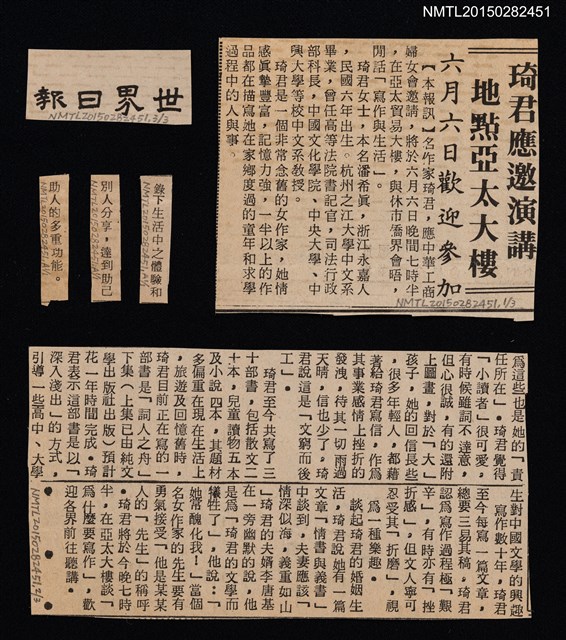 NMTL20150282451
世界日報
NMTL20150282451.3/3
琦君應邀演講
地點亞太大樓
六月六日歡迎參加
【本報訊】名作家琦君，應中華工商
婦女會邀請，將於六月六日晚間七時半
，在亞太貿易大樓，與休市僑界會晤，
閒話「寫作與生活」。
琦君女士，本名潘希眞，浙江永嘉人
，民國六年出生。杭州之江大學中文系
畢業，曾任高等法院書記官，司法行政
部科長，中國文化學院、中央大學、中
興大學等校中文系敎授。
琦君是一個非常念舊的女作家，她情
感眞摯豐富，記憶力強，一半以上的作
品都在描寫她在家鄉度過的童年和求學
過程中的人與事。
NMTL20150282451.1/3
錄下生活中之體驗和
別人分享，達到助己
助人的多重功能。
爲這些也是她的「責
任所在」。琦君覺得
「小讀者」很可愛，
有時候雖詞不達意，
但心很誠，有的還附
上圖畫，對於「大」
孩子，她的回信長些
，很多年輕人，都藉
著給琦君寫信，作爲
其事業感情上挫折的
發洩，待其一切雨過
天晴，信也少了，琦
君說這是「文窮而後
工」。
琦君至今共寫了三
十部書，包括散文二
十本，兒童讀物五本
及小說四本，其題材
多偏重在現在生活上
，旅遊及回憶舊時，
琦君目前正在寫的一
部書是「詞人之舟」
下集（上集已由純文
學出版社出版）預計
花一年時間完成。琦
君表示這部書是以「
深入淺出」的方式，
引導一些高中、大學
生對中國文學的興趣
寫作數十年，琦君
至今每寫一篇文章，
總要三易其稿，琦君
認爲寫作過程極「艱
辛」，有時亦有「挫
折感」，但文人寧可
忍受其「折磨」，視
爲一種樂趣。
談起琦君的婚姻生
活，琦君說她有一篇
文章「情書與義書」
中談到，夫妻應該「
情深似海，義重如山
」琦君的夫婿李唐基
在一旁幽默的說，他
是爲「琦君的文學而
犧牲了」，他說：「
她常醜化我！」當個
名女作家的先生要有
勇氣接受「他是某某
人的「先生」的稱呼
。琦君將於今晚七時
半，在亞太大樓談「
爲什麼要寫作」，歡
迎各界前往聽講。
NMTL20150282451.2/3